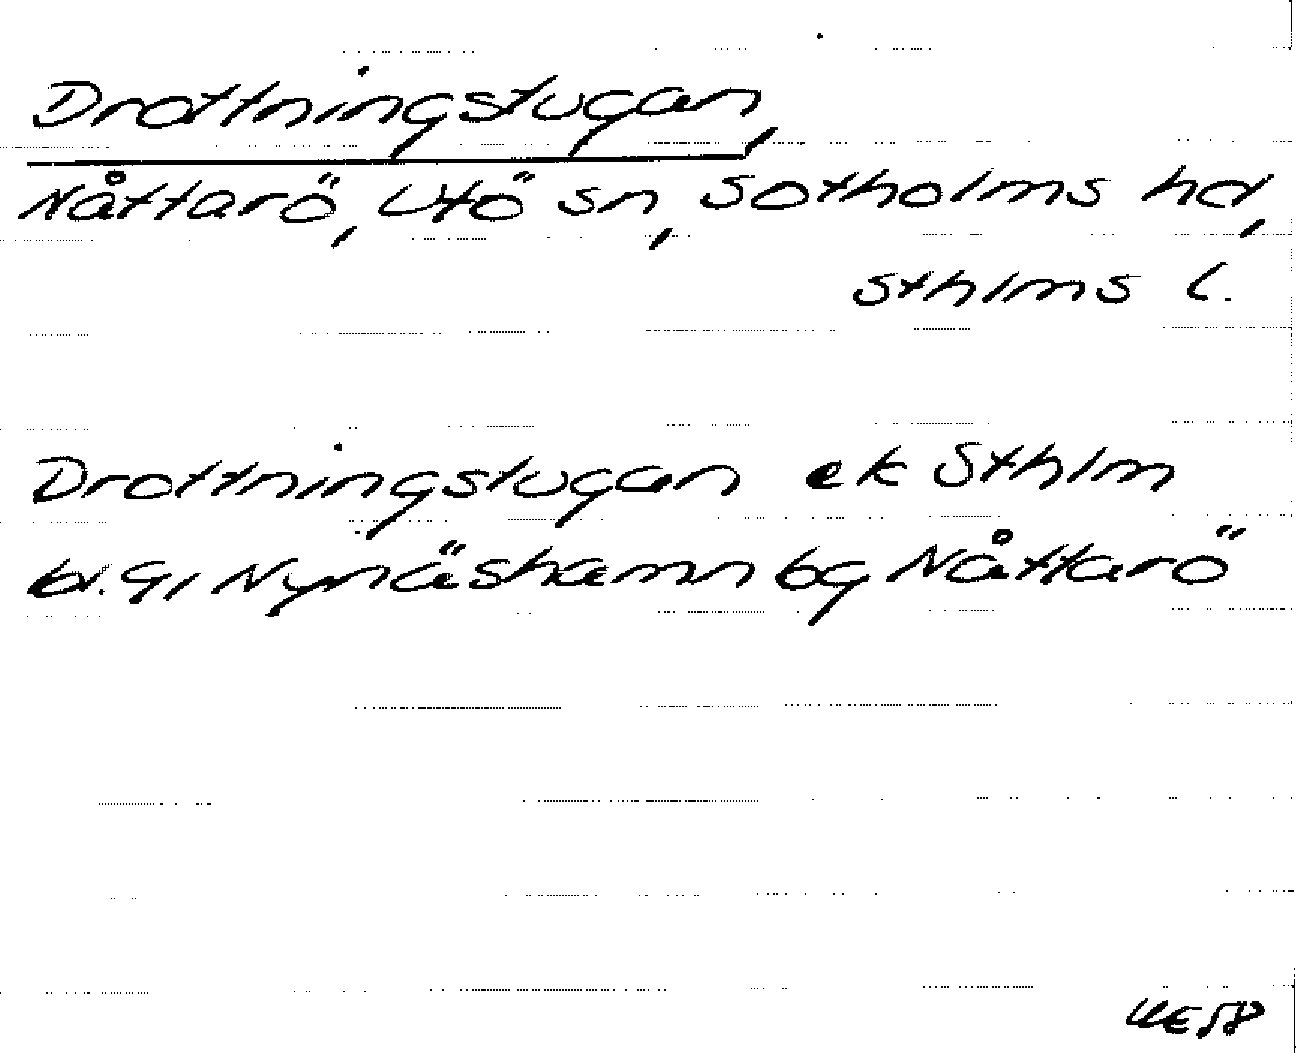 Drottningstugan,
Nåttarö, Utö sn, Sotholms hd,
Sthlms l.
Drottningstugan ek Sthlm
bl. 91 Nynäshamn bg Nåttarö